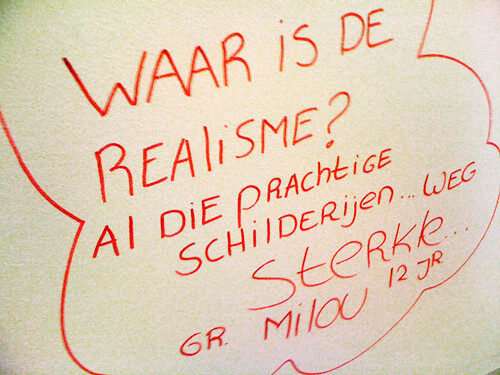 WAAR iS DE
REALiSME?
Al DiE PRACHTIGE
SCHilDERijen... WEG
STERKte...
GR. Milou 12 JR.